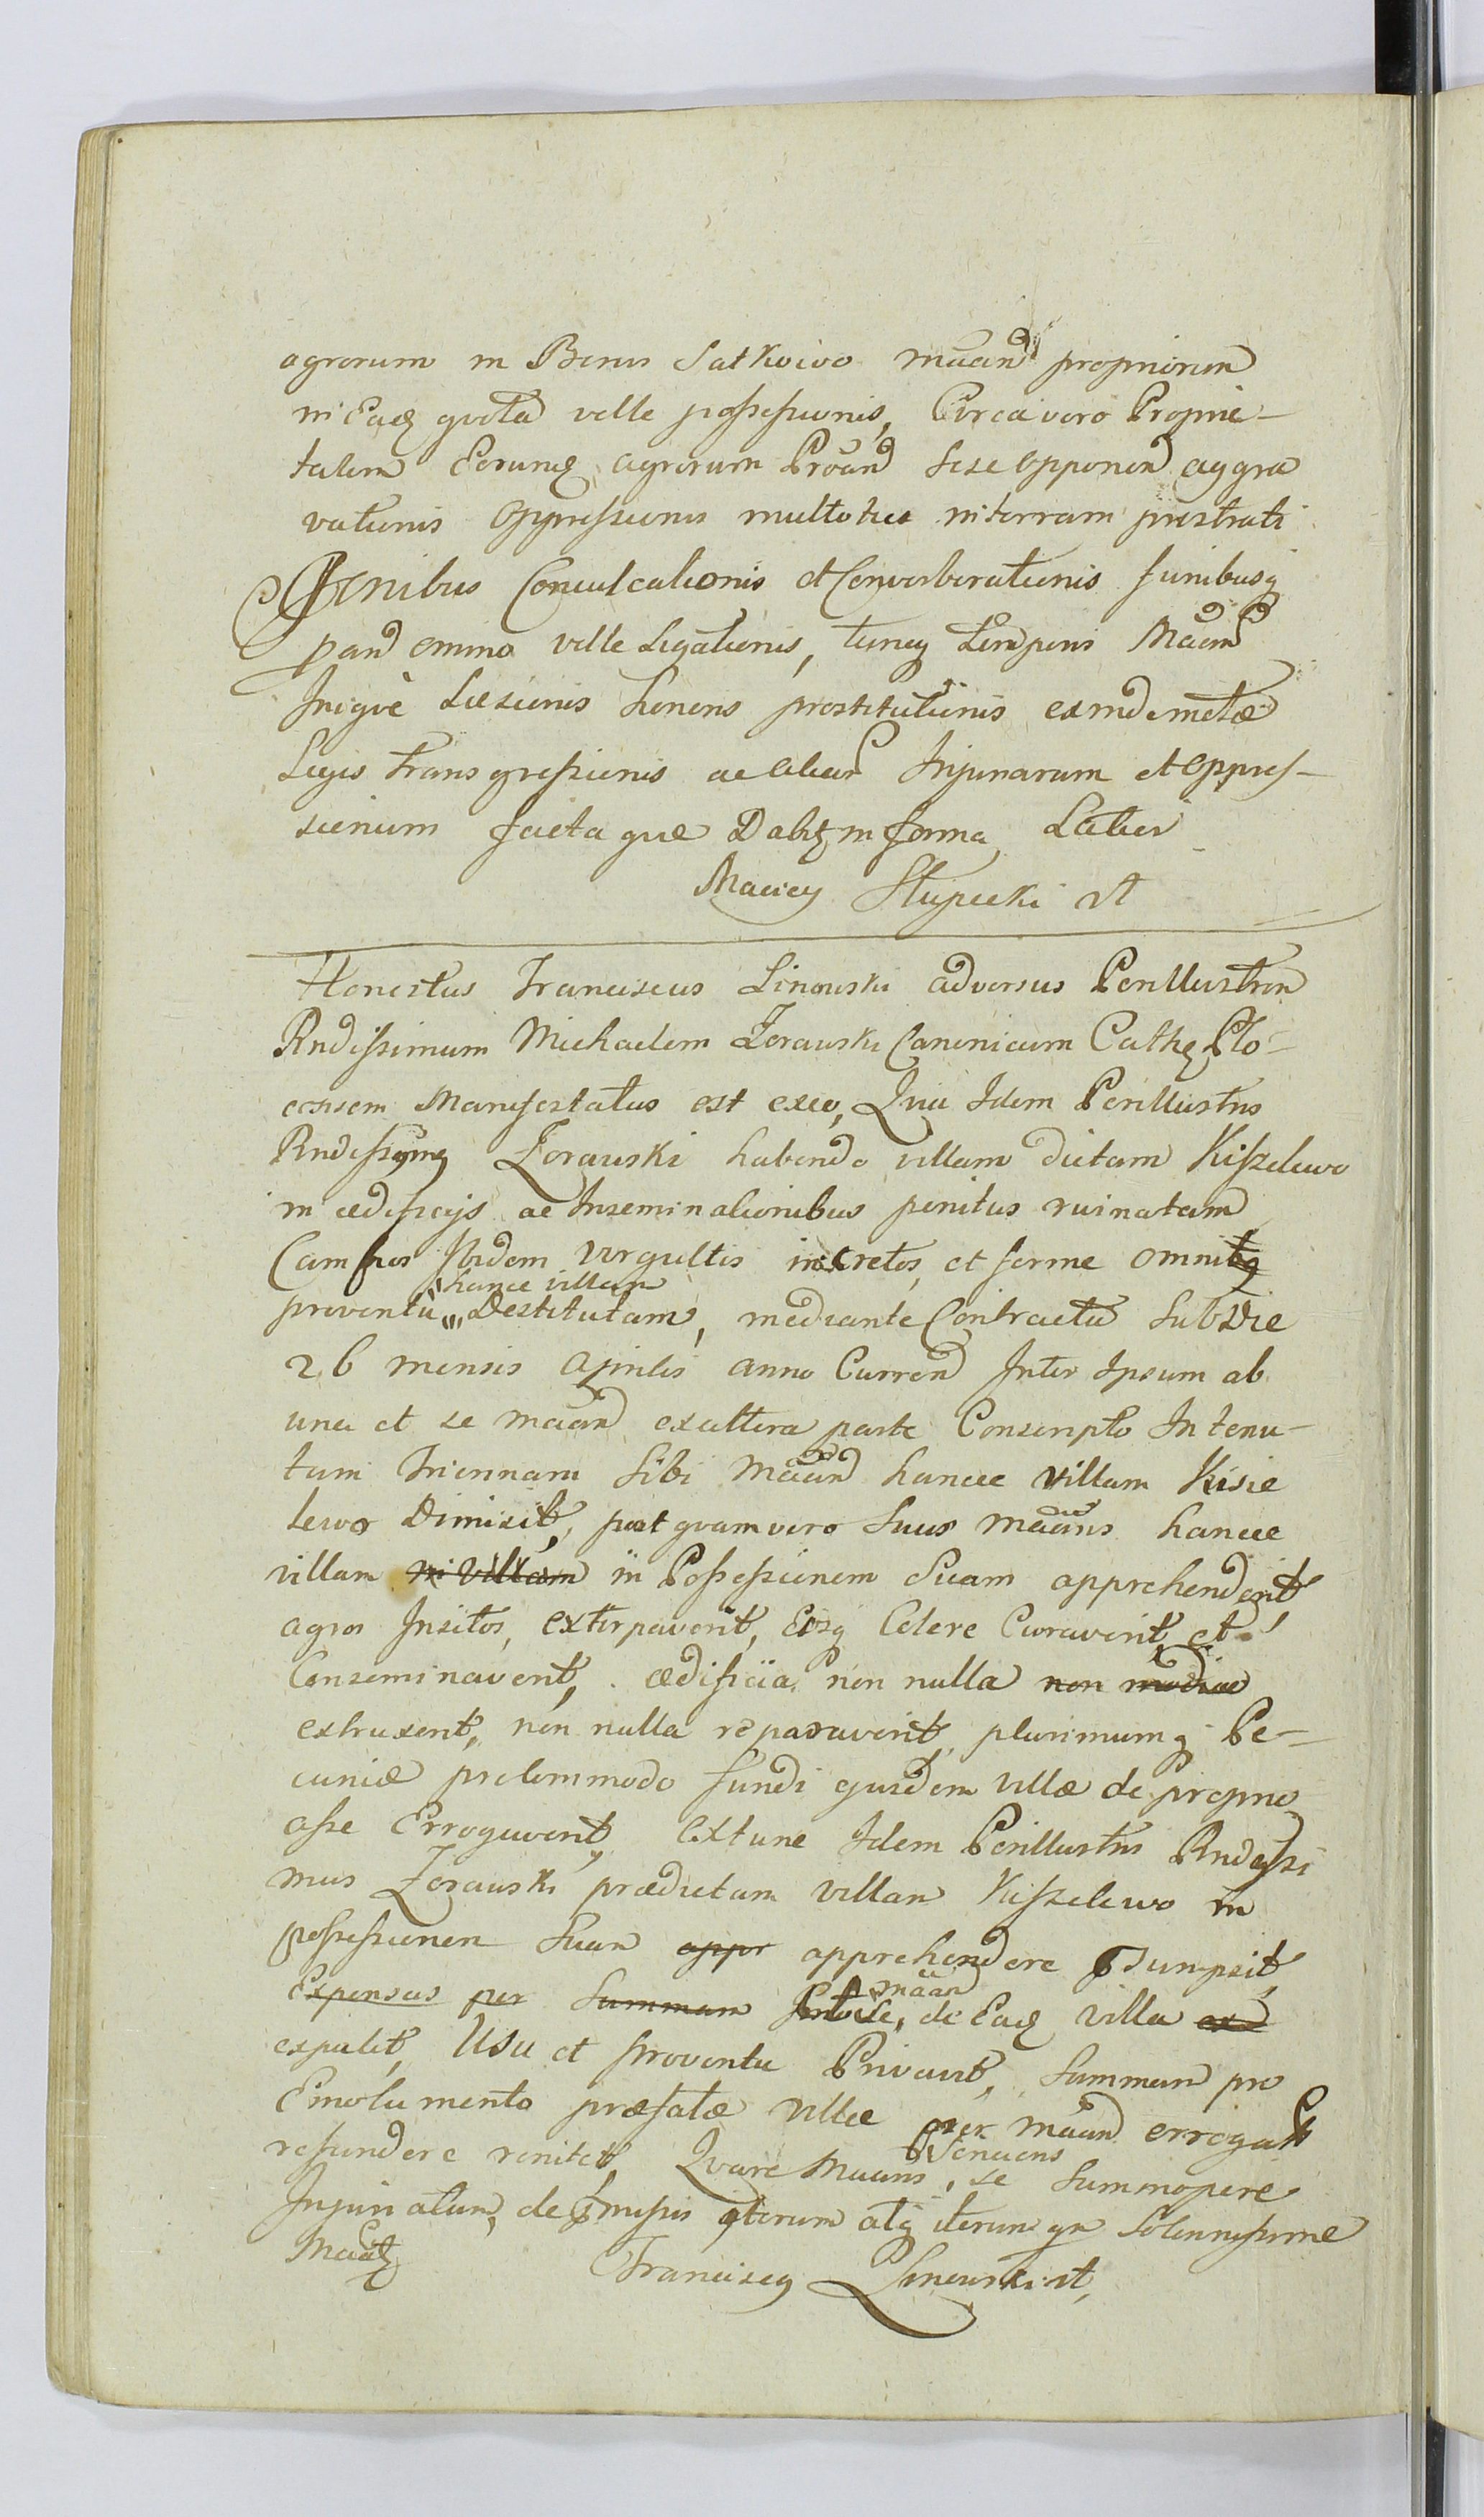 agrorum in Bonis Satkowo maan propriorum
in Eadq quota velle possessionis, Circa vero Proprie-
tatem Eorumq agrorum Proan sese opponen aggra
vationis Oppressionis multoties in terram prostrati
Conculcationis et Converberationis funibusq
velle Ligationis, tuncq temporis Maan
Iniquè Læsionis honoris prostitutionis
Legis transgressionis ac aliar Injuriarum et Oppres-
sionum facta quæ Dabit in forma Latiori
Maciey Słupecki
Honestus Franciscus Linowski adversus Perillustrem
Rndissimum Michaelem Zorawski Canonicum Cathq Plo-
censem Manifestatus est exeo, Quia Idem Perillustris
Rndissimq Zorawski habendo villam dictam Kiszelewo
in ædificijs ac Inseminationibus penitus ruinatam
Campos Ibidem virgultis incretos, et ferme omnibq
hance villam
proventu Destitutam, mediante Contractu Sub Die
26 mensis Aprilis anno Curren Inter Ipsum ab
una et se maan ex altera parte Conscripto In tenu-
tam Triennam Sibi Maan hancce villam Kisie
lewo Dimisit, post quam vero Suus maans hancce
villam in villam in Possessionem Suam apprehenderit
agros Insitos, extirpaverit, Eosq Colere Curaverit et
Conseminaverit, ædificia non nulla non
extruxerit, non nulla reparaverit, plurimumq Pe-
cuniæ pro Commodo fundi ejusdem villæ de proprio
asse Errogaverit, extunc Idem Perillustris Rndissi
mus Zorawski prædictam villam Kiszelewo in
possessionem Suam appr apprehendere
maan
Expensas per Summam de Eadq villa
expulit, Usu et proventu Privavit, Summam pro
Emolumento præfatæ villæ per maan errogat
refundere renitet,
Senciens
Quare Maans, se Summopere
Injuriatum, de præmissis iterum atq iterum Solennissime
Maatq Francisceq Linowski